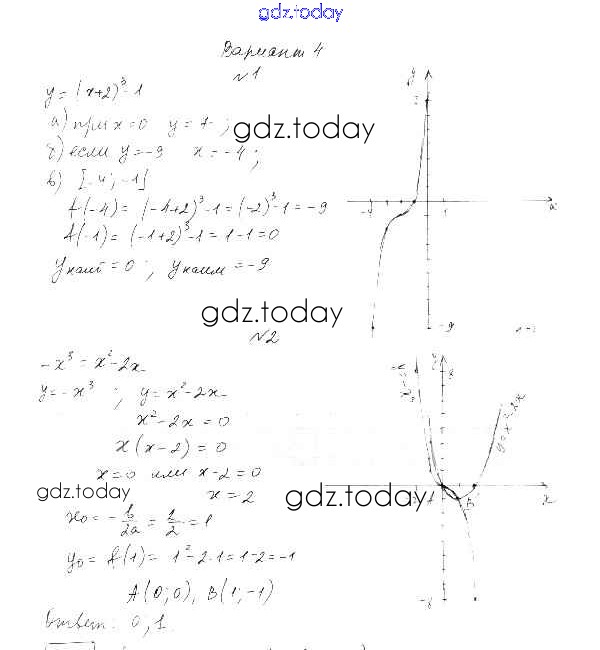 gdz.today
Вариант 4
№1
y = (x+2)³-1
а) при x=0 y=7;
gdz.today
б) если y=-9 x=-4;
в) [-4; -1]
f(-4) = (-4+2)³-1 = (-2)³-1 = -9
f(-1) = (-1+2)³-1 = 1-1 = 0
yнаиб = 0; yнаим = -9
y
7
-4
1
x
-9
gdz.today
№2
-x³ = x²-2x
y = -x³; y = x²-2x
x²-2x = 0
x(x-2) = 0
x=0 или x-2=0
gdz.today
x = 2
gdz.today
x₀ = -b/2a = 2/2 = 1
y₀ = f(1) = 1²-2·1 = 1-2 = -1
A(0; 0), B(1; -1)
Ответ: 0; 1.
y
8
y=x²-2x
A
B
x
-8